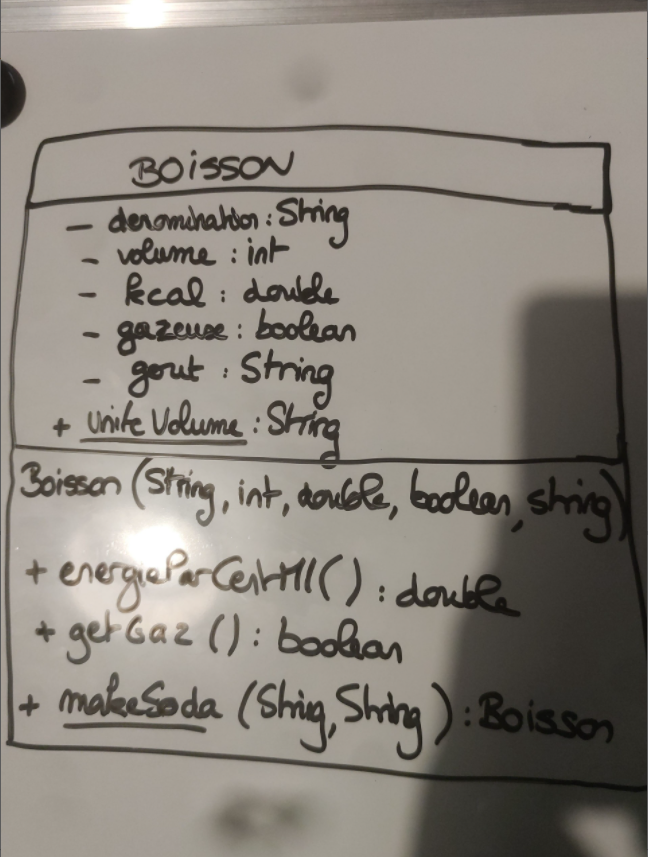 BOISSON
- denomination : String
- volume : int
- kcal : double
- gazeuse : boolean
- gout : String
+ unite Volume : String
Boisson (String, int, double, boolean, string)
+ energieParCentMl() : double
+ getGaz () : boolean
+ makeSoda (String, String) : Boisson